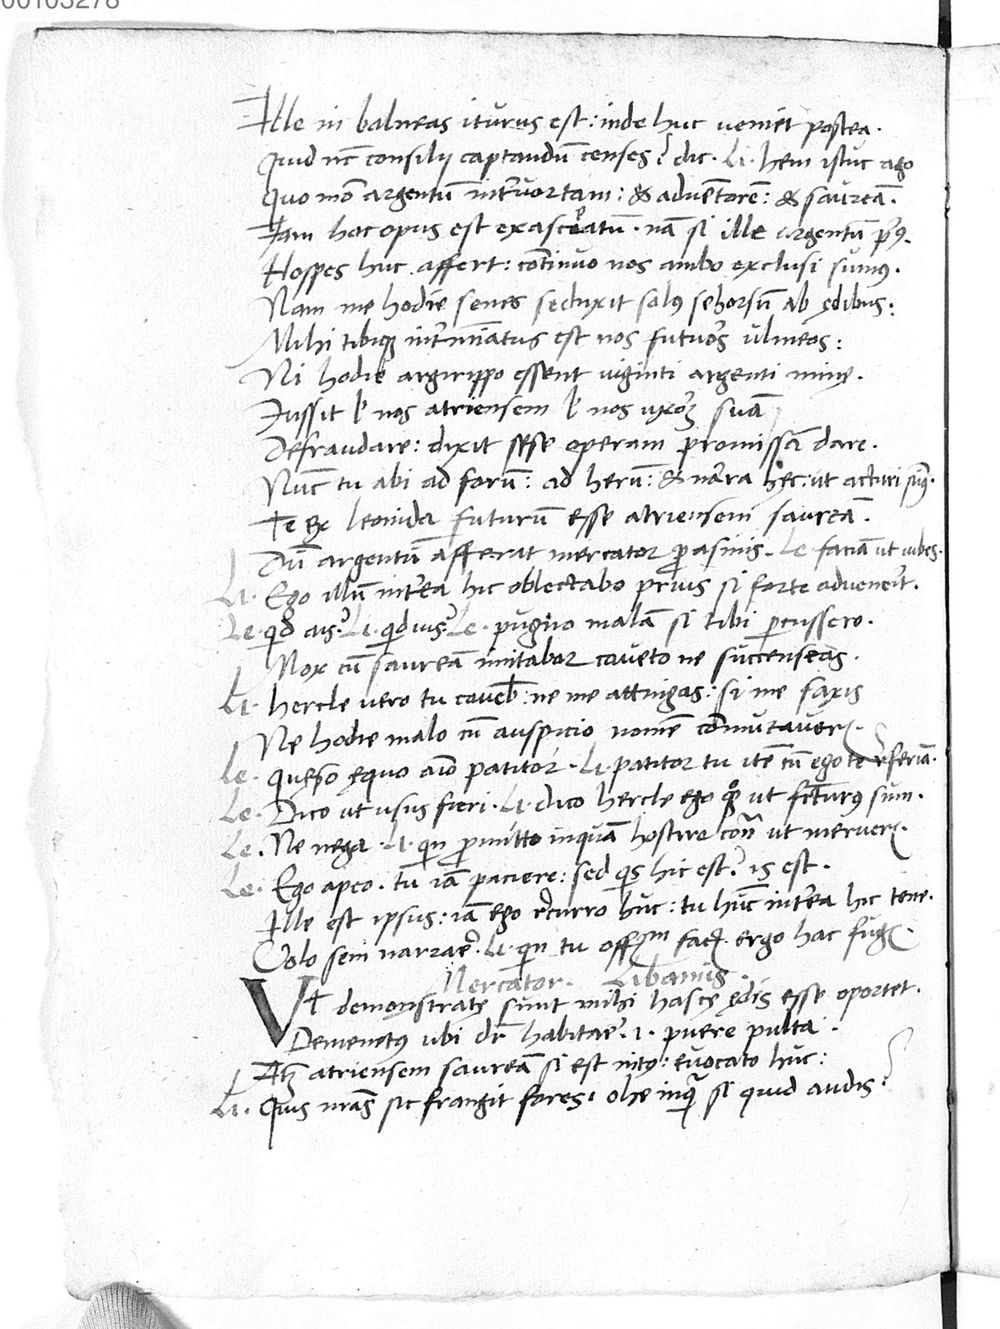 00103278
Ille in balneas iturus est: inde huc ueniet postea.
Quid nc̄ consilij captandū censes? dic. Li. hem istuc ago
Quo mō argentū int̄uortam: & aduētorē: & saureā.
Iam hoc opus est exasceatū. nā si ille argentū p̄9
Hospes huc affert: cōtinuo nos ambo exclusi sum9.
Nam me hodie senes seduxit sol9 sehorsū ab ędibus:
Mihi tibiq; int̄minatus est nos futuros ulmeos:
Ni hodie argirippo essent uiginti argenti minę.
Iussit ł nos atriensem ł nos uxorē suā
Defraudare: dixit sese operam promissā dare.
Nūc tu abi ad forū: ad herū: & narra hęc: ut acturi sum9.
Te ex leonida futurū esse atriensem saureā.
Dū argentū afferat mercator p asinis. Le. faciā ut iubes.
Li. Ego illū int̄ea hic oblectabo prius si forte aduenerit.
Le. qd ais? Li. qd uis? Le. pugno malā si tibi percussero.
Mox cū saureā imitabor caueto ne succenseas.
Li. hercle uero tu cauebis: ne me attingas: si me saxis
Ne hodie malo cū auspicio nomē cōmutaueris.
Le. queso ęquo aīo patitor. Li. patitor tu itē cū ego te referiā.
Le. Dico ut usus fieri. Li. dico hercle ego quoq ut facturus sum.
Le. Ne nega. Li. qn promitto inquā hostire contra ut merueris.
Le. Ego abeo. tu iā paciere: sed qs hic est? is est.
Ille est ipsus: iā ego recurro huc: tu hūc int̄ea hic tene.
Volo seni narrare. Li. qn tu officium facis ergo hac fugis.
Mercator. Libanus.
VT demonstratę sunt mihi hasce ędis esse oportet.
Demenet9 ubi dr̄ habitare. i. puere pulta.
Atq; atriensem saureā si est int9: euocato huc:
Li. Quis nr̄as sic frangit fores. ohe inquā si quid audis.